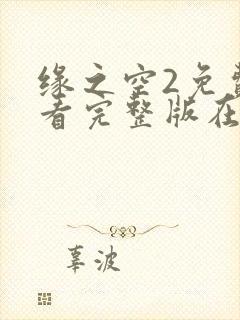 缘之空2免费
看完整版在
辜波